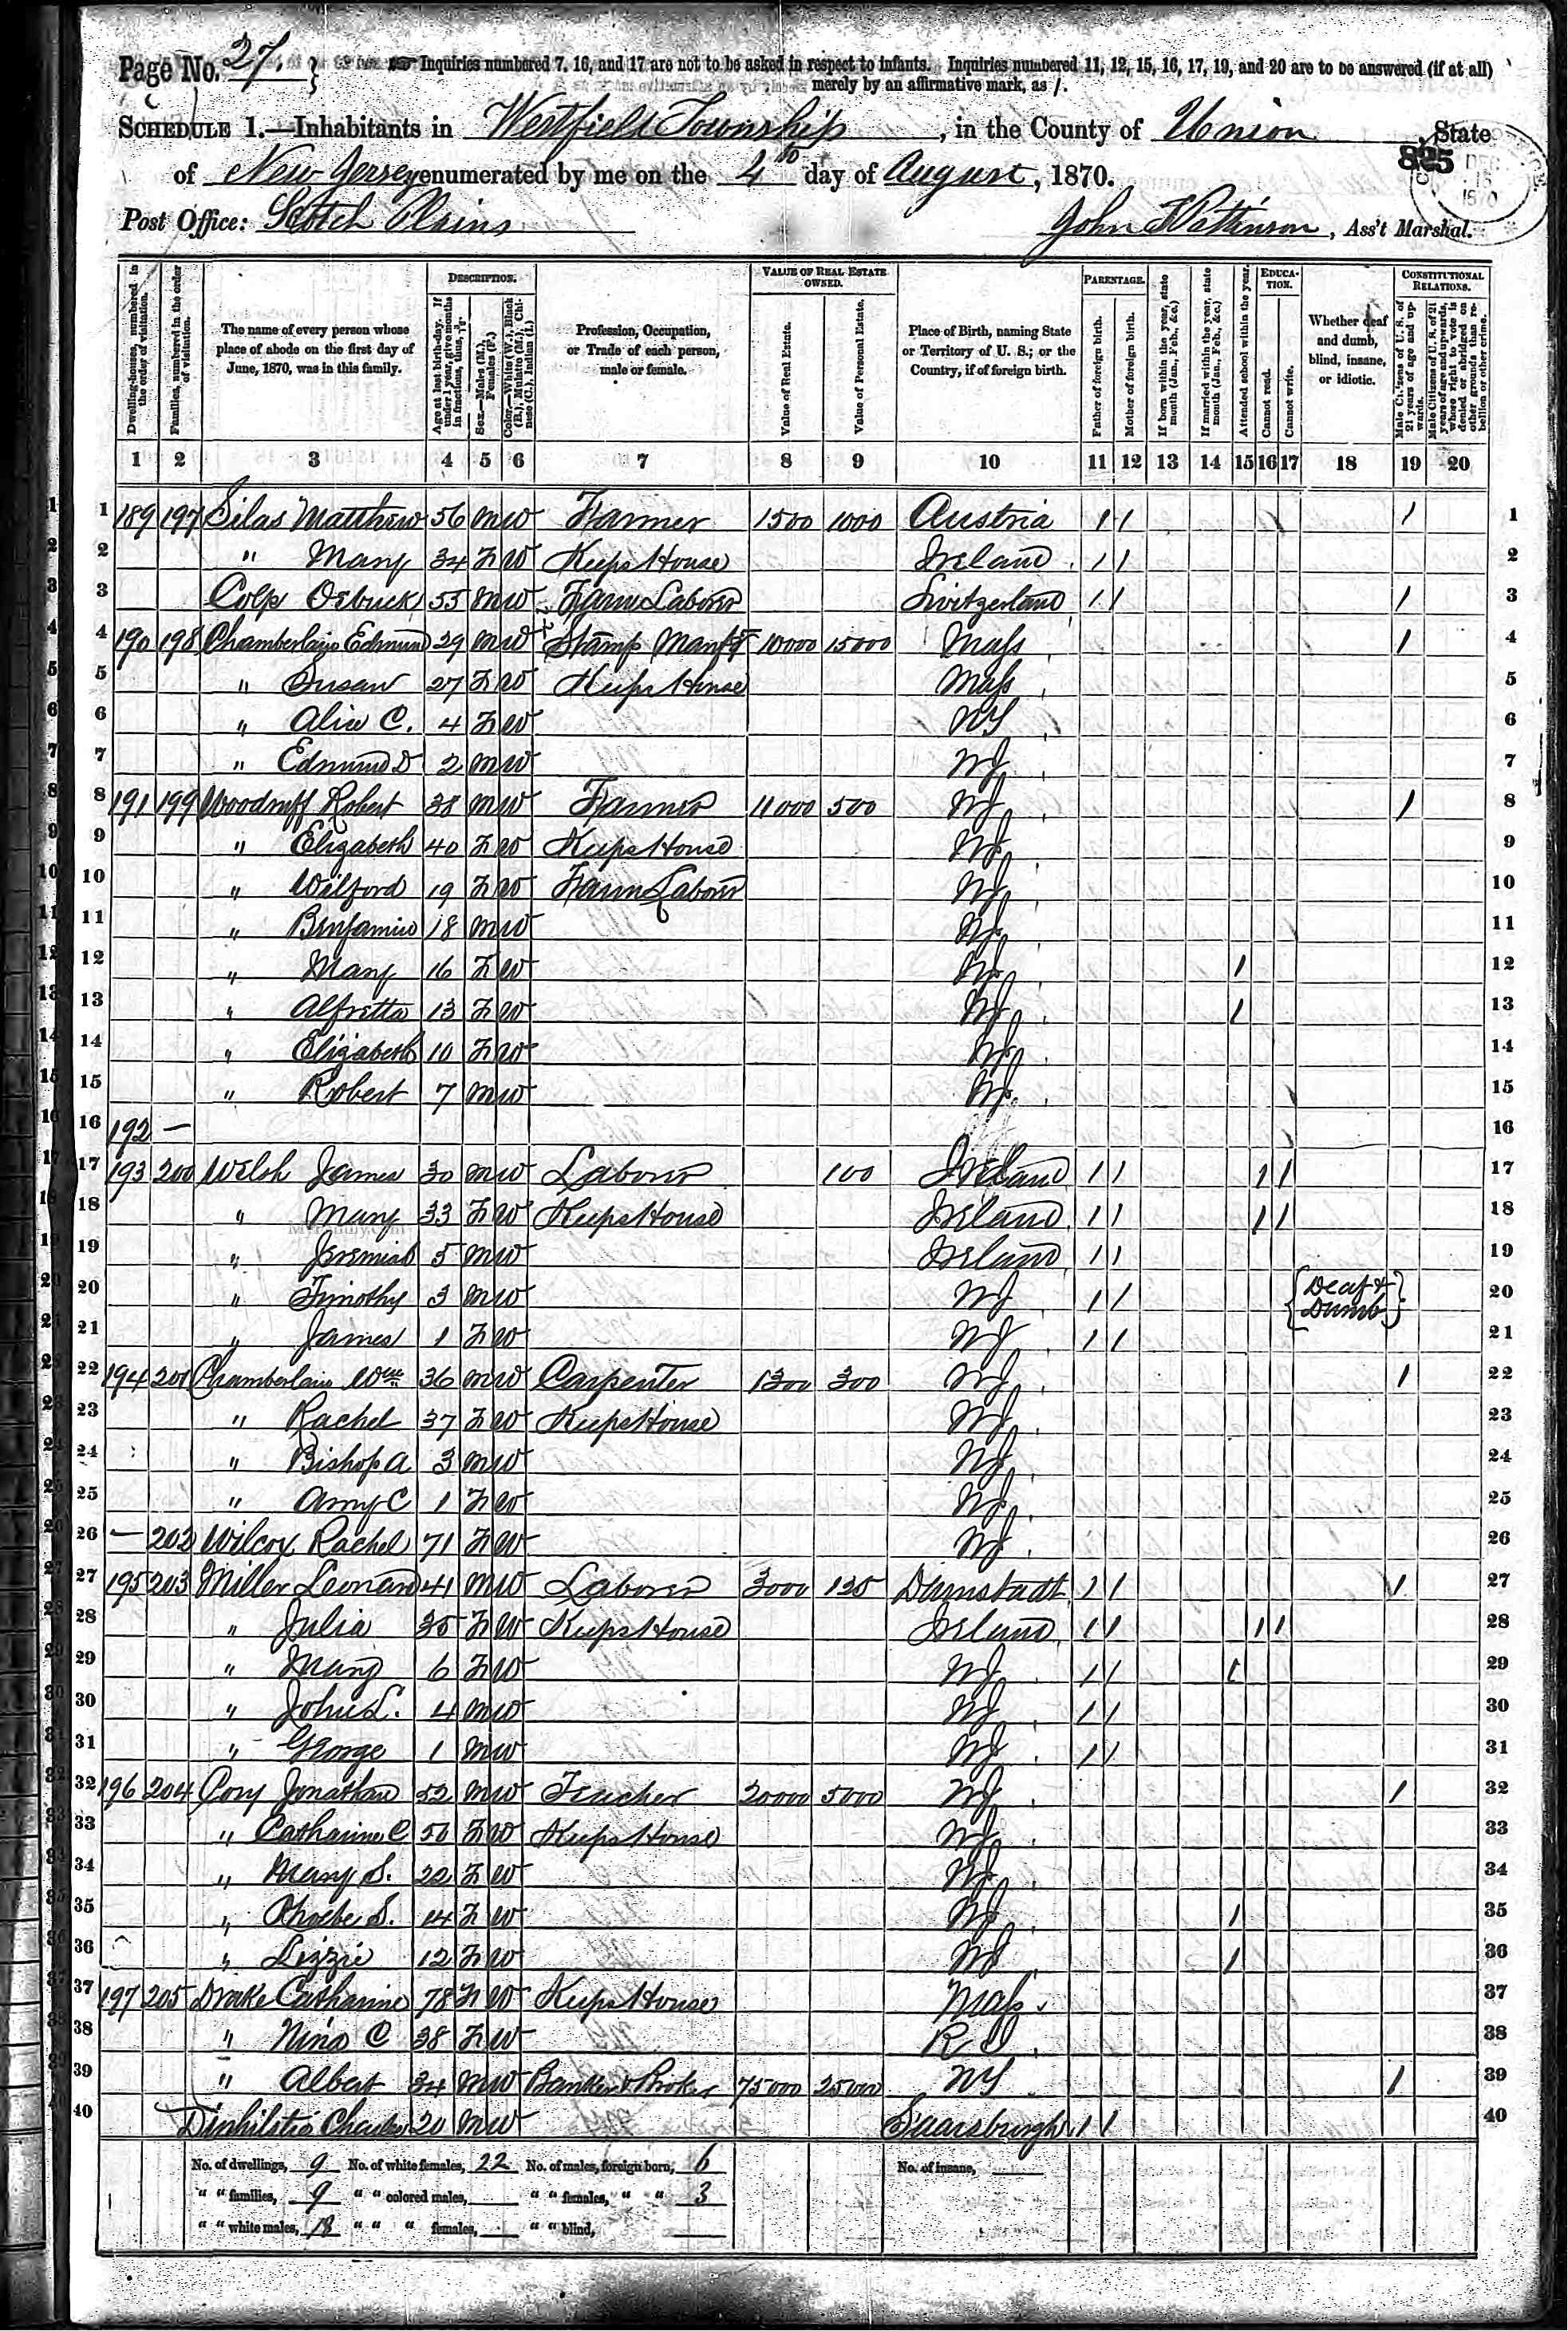 Page No. 27. } Inquiries numbered 7, 16, and 17 are not to be asked in respect to infants. Inquiries numbered 11, 12, 15, 16, 17, 19, and 20 are to be answered (if at all)
merely by an affirmative mark, as /.
SCHEDULE 1.—Inhabitants in Westfield Township, in the County of Union, State
of New Jersey enumerated by me on the 4th day of August, 1870.
825
DEC 1870
Post Office: Scotch Plains
Ass't Marshal.
Dwelling-houses, numbered in the order of visitation.
Families, numbered in the order of visitation.
The name of every person whose place of abode on the first day of June, 1870, was in this family.
DESCRIPTION.
Age at last birth-day. If under 1 year, give months in fractions, thus, 3/12.
Sex.—Males (M.), Females (F.)
Color.—White (W.), Black (B.), Mulatto (M.), Chinese (C.), Indian (I.)
Profession, Occupation, or Trade of each person, male or female.
VALUE OF REAL ESTATE OWNED.
Value of Real Estate.
Value of Personal Estate.
Place of Birth, naming State or Territory of U. S.; or the Country, if of foreign birth.
PARENTAGE.
Father of foreign birth.
Mother of foreign birth.
If born within the year, state month (Jan., Feb., &c.)
If married within the year, state month (Jan., Feb., &c.)
EDUCATION.
Attended school within the year.
Cannot read.
Cannot write.
Whether deaf and dumb, blind, insane, or idiotic.
CONSTITUTIONAL RELATIONS.
Male Citizens of U. S. of 21 years of age and upwards.
Male Citizens of U. S. of 21 years of age and upwards, whose right to vote is denied or abridged on other grounds than rebellion or other crime.
1 2 3 4 5 6 7 8 9 10 11 12 13 14 15 16 17 18 19 20
1 189 197 Silas Matthew 56 M W Farmer 1500 1000 Austria / / / 1
2 " Mary 34 F W Keeps House Ireland / / 2
3 Colp 55 M W Farm Laborer Switzerland / / / 3
4 190 198 Chamberlain Edmund 29 M W Stamp Manft 10000 15000 Mass / 4
5 " Susan 27 F W Keeps House Mass 5
6 " Alice C. 4 F W NY 6
7 " Edmund D 2 M W NJ 7
8 191 199 Woodruff Robert 38 M W Farmer 11000 500 NJ / 8
9 " Elizabeth 40 F W Keeps House NJ 9
10 " Wilford 19 F W Farm Laborer NJ 10
11 " Benjamin 18 M W NJ 11
12 " Mary 16 F W NJ / 12
13 " Alfretta 13 F W NJ / 13
14 " Elizabeth 10 F W NJ 14
15 " Robert 7 M W NJ 15
16 192 — 16
17 193 200 Welsh James 30 M W Laborer 100 Ireland / / / / 17
18 " Mary 33 F W Keeps House Ireland / / / / 18
19 " Jeremiah 5 M W Ireland / / 19
20 " Timothy 3 M W NJ / / { Deaf & Dumb } 20
21 " James 1 F W NJ / / 21
22 194 201 Chamberlain Wm 36 M W Carpenter 1300 300 NJ / 22
23 " Rachel 37 F W Keeps House NJ 23
24 " Bishop A 3 M W NJ 24
25 " Amy C 1 F W NJ 25
26 — 202 Wilcox Rachel 71 F W NJ 26
27 195 203 Miller Leonard 41 M W Laborer 3000 125 Darmstadt / / / 27
28 " Julia 35 F W Keeps House Ireland / / / / 28
29 " Mary 6 F W NJ / / / 29
30 " John L. 4 M W NJ / / 30
31 " George 1 M W NJ / / 31
32 196 204 Cory Jonathan 52 M W Teacher 20000 5000 NJ / 32
33 " Catharine C 50 F W Keeps House NJ 33
34 " Mary S. 22 F W NJ 34
35 " Phoebe S. 14 F W NJ / 35
36 " Lizzie 12 F W NJ / 36
37 197 205 Drake Catharine 78 F W Keeps House Mass. 37
38 " Nina C 38 F W R I 38
39 " Albert 34 M W Banker & Broker 75000 25000 NY / 39
40 Charles 20 M W / / 40
No. of dwellings, 9 No. of white females, 22 No. of males, foreign born, 6 No. of insane,
" " families, 9 " " colored males, " " females, " " 3
" " white males, 18 " " " females, " " blind,